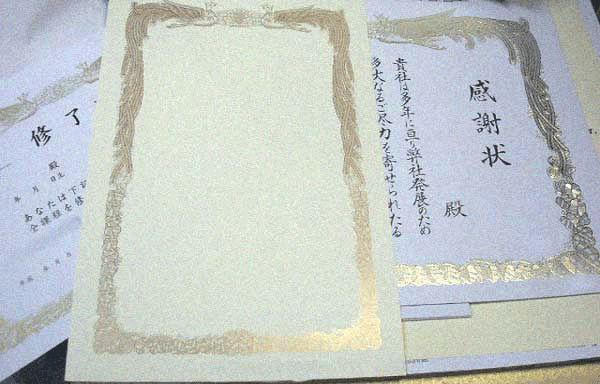 修了
殿
年 月 日生
あなたは下記
全課程を修
平成 年 月 日
感謝状
殿
貴社は多年に亘り弊社発展のため
多大なるご尽力を寄せられたる